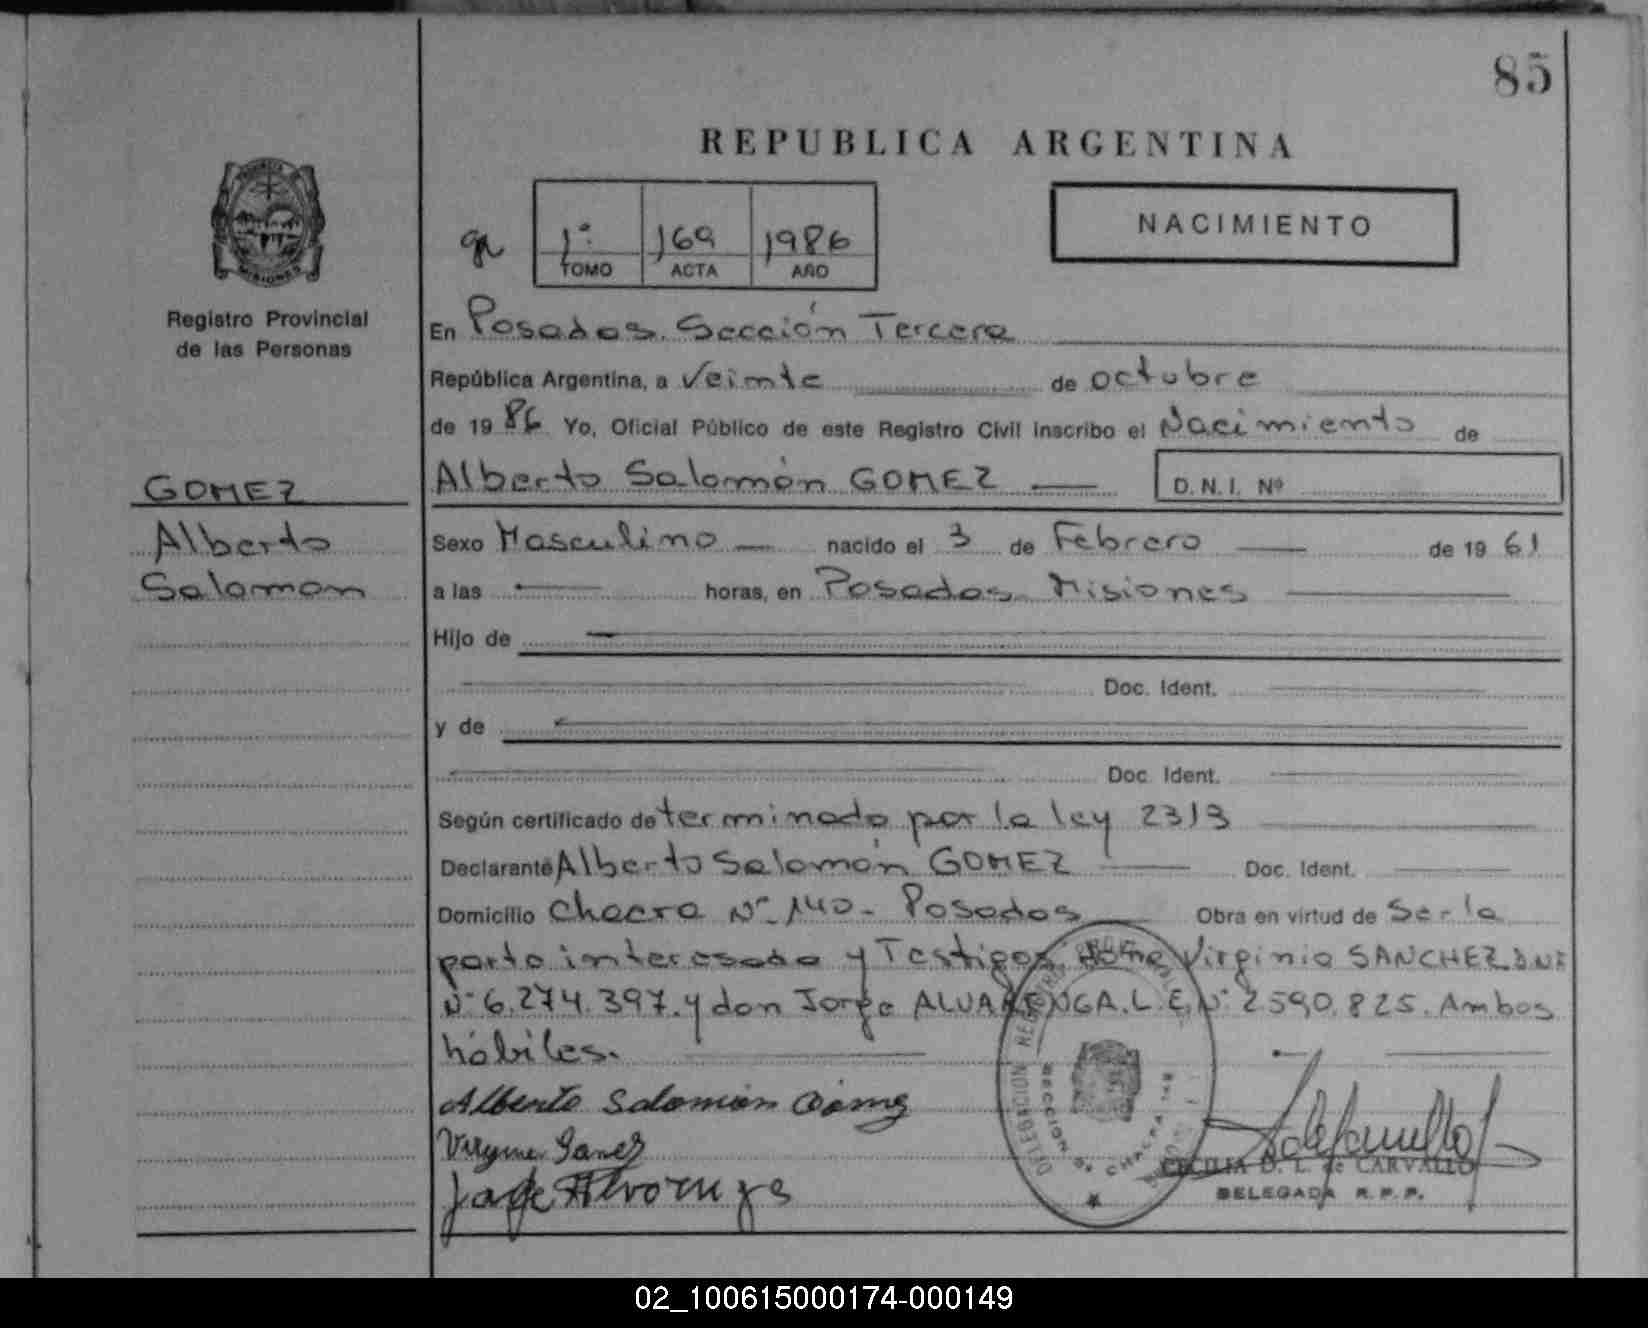 85
REPUBLICA ARGENTINA
NACIMIENTO
1º 169 1986
TOMO ACTA AÑO
MISIONES
Registro Provincial
de las Personas
En Posadas. Sección Tercera
República Argentina, a Veinte de octubre
de 1986 Yo, Oficial Público de este Registro Civil inscribo el Nacimiento de
Alberto Salomón GOMEZ D.N.I. Nº
GOMEZ
Alberto
Salomon
Sexo Masculino nacido el 3 de Febrero de 1961
a las horas, en Posadas Misiones
Hijo de
Doc. Ident.
y de
Doc. Ident.
Según certificado determinado por la ley 2313
Declarante Alberto Salomón GOMEZ Doc. Ident.
Domicilio Chacra Nº 140- Posadas Obra en virtud de Ser la
parte interesada y Testigos Virginio SANCHEZ D.N.I
Nº 6.274.397. y don Jorge ALVARENGA. L.E. Nº 2590.825. Ambos
hábiles.
Alberto Salomón Gómez
Jorge Alvarenga
DELEGACION REGISTRO PROVINCIAL
SECCION 3a CHACRA 148
CECILIA D. L. de CARVALLO
DELEGADA R. P. P.
02_100615000174-000149